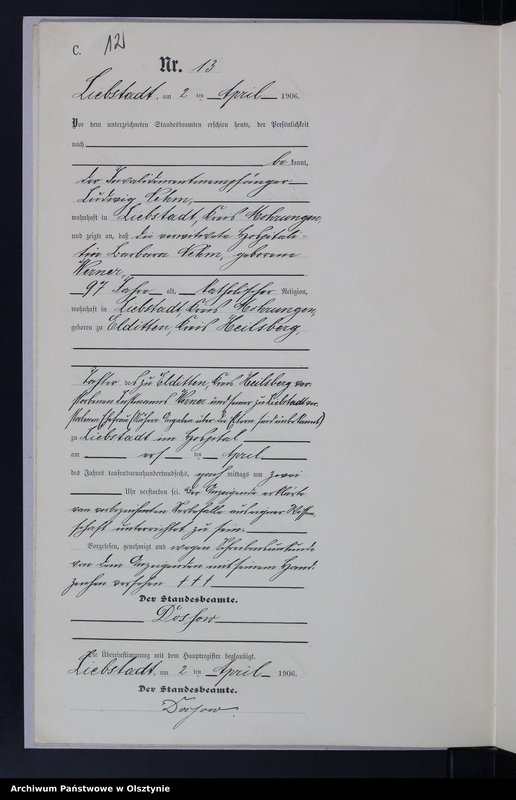 C.
12
Nr. 13
Liebstadt, am 2 ten April 1906.
Vor dem unterzeichneten Standesbeamten erschien heute, der Persönlichkeit
nach
be kannt,
der Invalidenrentenempfänger
Ludwig
wohnhaft in Liebstadt, Kreis Mohrungen,
und zeigte an, daß die verwitwete Hospitali-
tin Barbara geborene
Werner,
97 Jahre alt, katholischer Religion,
wohnhaft in Liebstadt, Kreis Mohrungen,
geboren zu Elditten, Kreis Heilsberg,
Tochter des zu Elditten, Kreis Heilsberg ver-
storbenen Werner und seiner zu Liebstadt ver-
storbenen Ehefrau (Nähere Angaben über die Eltern sind unbekannt)
zu Liebstadt im Hospital
am ersten April
des Jahres tausendneunhundertundsechs, nach mittags um zwei
Uhr verstorben sei. Der Anzeigende erklärte
von vorbezeichneten Sterbefalle aus eigner Wissen-
schaft unterrichtet zu sein.
Vorgelesen, genehmigt und wegen Schreibensunkunde
von dem Anzeigenden mit seinem Hand-
zeichen versehen + + +
Der Standesbeamte.
Die Übereinstimmung mit dem Hauptregister beglaubigt.
Liebstadt, am 2 ten April 1906.
Der Standesbeamte.
Archiwum Państwowe w Olsztynie